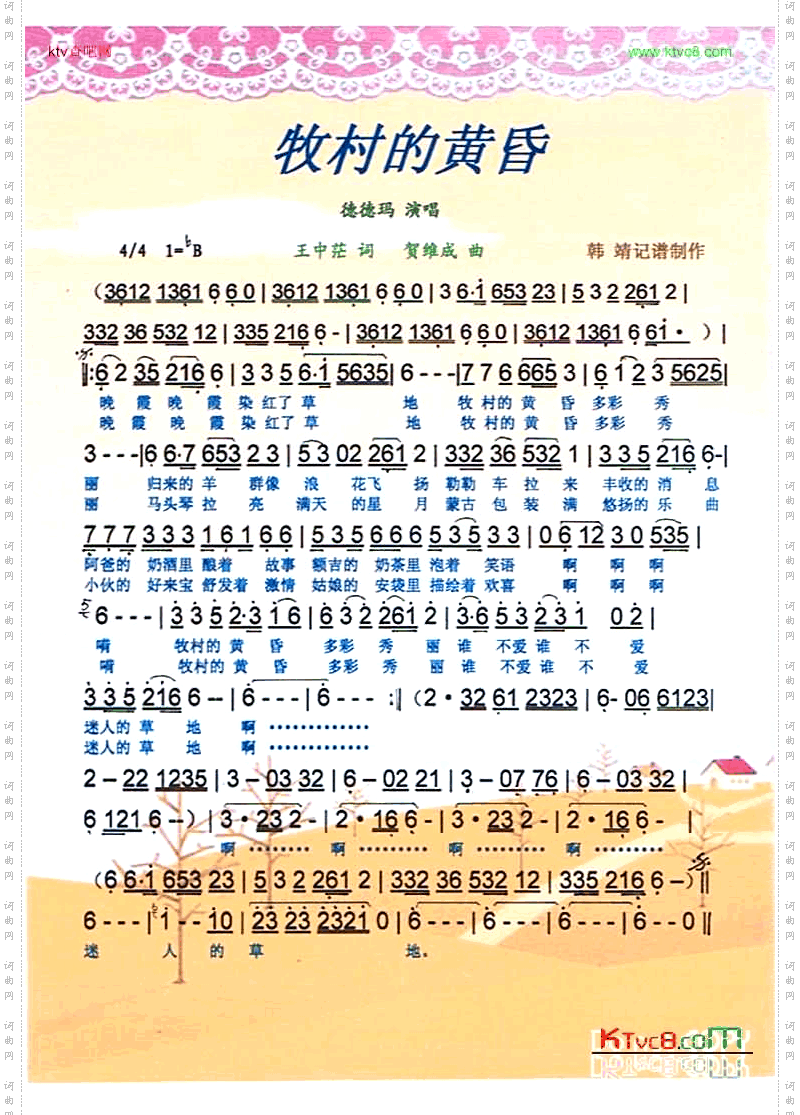 ktv香吧网 www.ktvc8.com
牧村的黄昏
德德玛 演唱
4/4 1=♭B 王中茫 词 贺维成 曲 韩 靖记谱制作
(3612 1361 6 6 0 | 3612 1361 6 6 0 | 3 6·1 653 23 | 5 3 2 261 2 |
332 36 532 12 | 335 216 6 - | 3612 1361 6 6 0 | 3612 1361 6 61· ) |
‖: 6 2 35 216 6 | 3 3 5 6·1 5635 | 6 - - - | 7 7 6 665 3 | 6 1 2 3 5625 |
晚 霞 晚 霞 染 红了 草 地 牧 村的 黄 昏 多彩 秀
晚 霞 晚 霞 染 红了 草 地 牧 村的 黄 昏 多彩 秀
3 - - - | 6 6·7 653 2 3 | 5 3 02 261 2 | 332 36 532 1 | 3 3 5 216 6- |
丽 归来的 羊 群像 浪 花飞 扬 勒勒 车 拉 来 丰收的 消 息
丽 马头琴 拉 亮 满天 的星 月 蒙古 包 装 满 悠扬的 乐 曲
7 7 7 3 3 3 1 6 1 6 6 | 5 3 5 6 6 6 5 3 5 3 3 | 0 6 12 3 0 535 |
阿爸的 奶酒里 酿着 故事 额吉的 奶茶里 泡着 笑语 啊 啊 啊
小伙的 好来宝 舒发着 激情 姑娘的 安袋里 描绘着 欢喜 啊 啊 啊
6 - - - | 3 3 5 2·3 1 6 | 6 3 2 261 2 | 3·6 5 3 2 3 1 0 2 |
唷 牧村的 黄 昏 多彩 秀 丽 谁 不爱 谁 不 爱
唷 牧村的 黄 昏 多彩 秀 丽 谁 不爱 谁 不 爱
3 3 5 216 6 -- | 6 - - - | 6 - - - :‖ (2 · 32 61 2323 | 6- 06 6123 |
迷人的 草 地 啊 ··············
迷人的 草 地 啊 ··············
2 – 22 1235 | 3 – 03 32 | 6 – 02 21 | 3 – 07 76 | 6 – 03 32 |
6 121 6 –) | 3 · 23 2 - | 2 · 16 6 - | 3 · 23 2 - | 2 · 16 6 - |
啊 ········· 啊 ·········· 啊 ·········· 啊 ··········
(6·1 653 23 | 5 3 2 261 2 | 332 36 532 12 | 335 216 6 –) ‖
6 - - - | 1 - - 10 | 23 23 2321 0 | 6 - - - | 6 - - - | 6 – – 0 ‖
迷 人 的 草 地。
KTvc8.com
词曲网